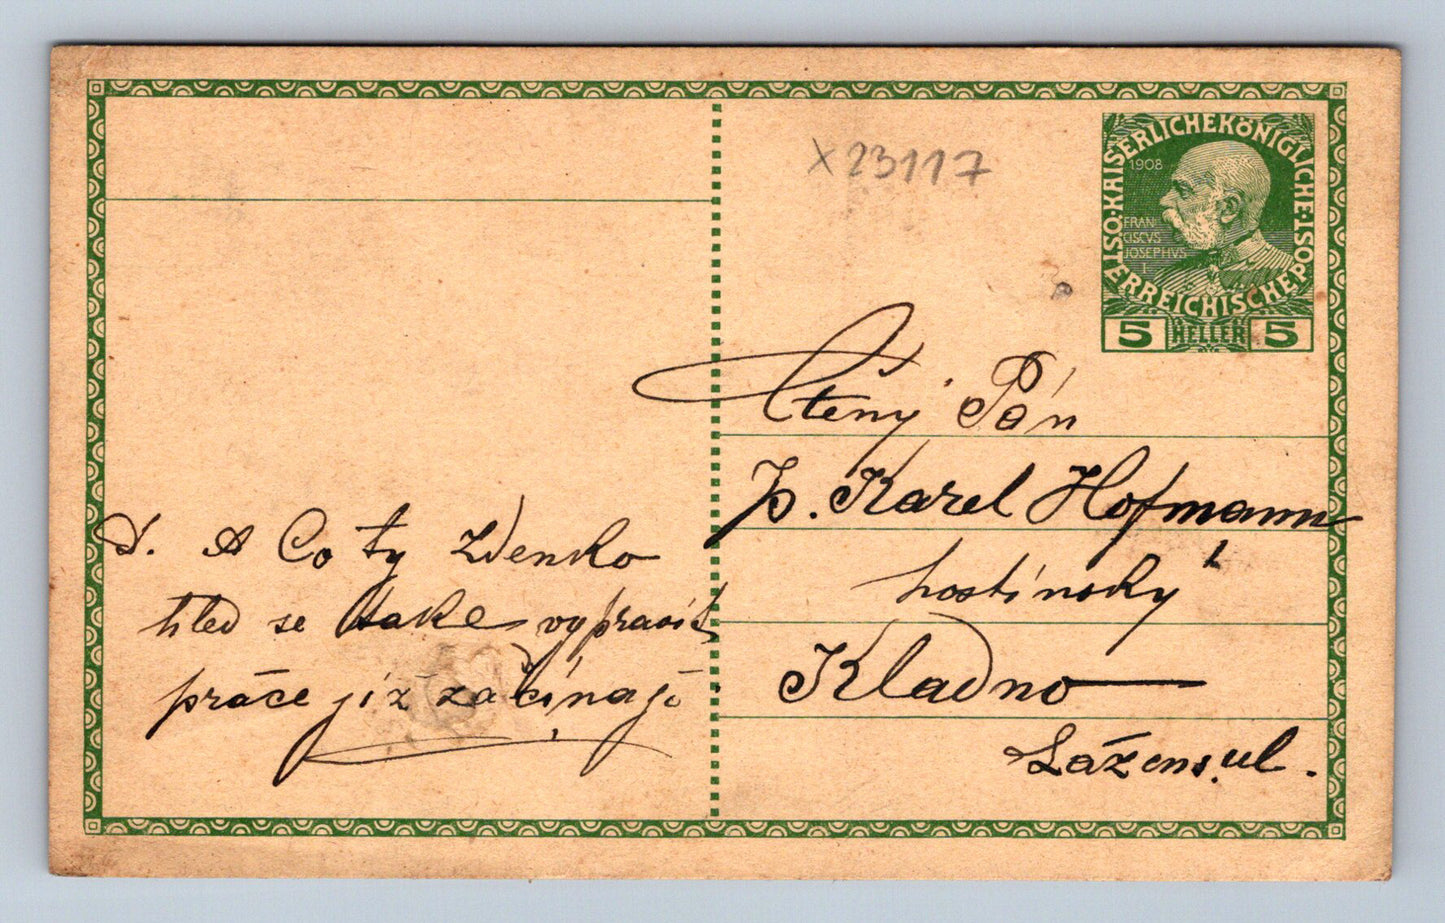 x 23117
KAISERLICHE KÖNIGLICHE ÖSTERREICHISCHE POST
1908
FRAN
CISCVS
JOSEPHVS
I
5 HELLER 5
Ctěný Pán
P. Karel Hofmann
hostinský
Kladno
Lázens. ul.
A Co ty Zdenko
hled se take vypravit
práce již začínají